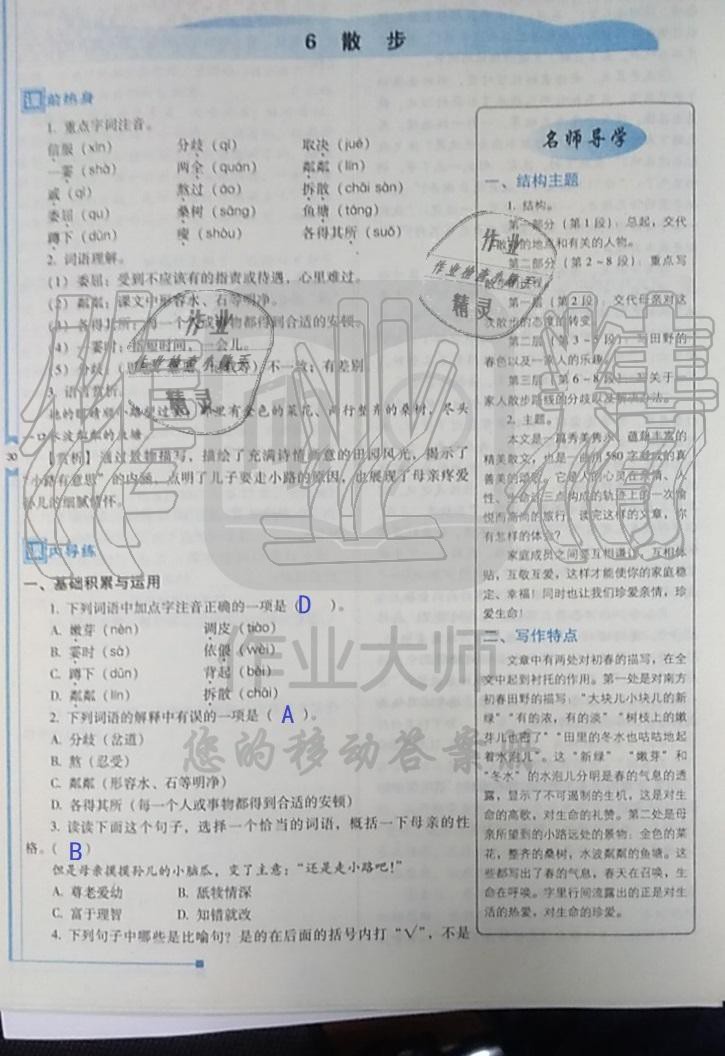 6 散 步
课前热身
1. 重点字词注音。
信服（xìn） 分歧（qí） 取决（jué）
一霎（shà） 两全（quán） 粼粼（lín）
戚（qī） 熬过（áo） 拆散（chāi sàn）
委屈（qu） 桑树（sāng） 鱼塘（táng）
蹲下（dūn） 瘦（shòu） 各得其所（suǒ）
2. 词语理解。
（1）委屈：受到不应该有的指责或待遇，心里难过。
（2）粼粼：课文中形容水、石等明净。
（3）各得其所：每一个人或事物都得到合适的安顿。
（4）一霎时：指短时间，一会儿。
（5）分歧：（思想、意见、记载等）不一致；有差别。
3. 语言赏析。
她的眼睛顺小路望过去：那里有金色的菜花、两行整齐的桑树，尽头
一口水波粼粼的鱼塘
【赏析】通过景物描写，描绘了充满诗情画意的田园风光，揭示了
“小路有意思”的内涵，点明了儿子要走小路的原因，也展现了母亲疼爱
孙儿的细腻情怀。
30
课内导练
一、基础积累与运用
1. 下列词语中加点字注音正确的一项是（ D ）。
A. 嫩芽（nèn） 调皮（tiào）
B. 霎时（sà） 依偎（wèi）
C. 蹲下（dūn） 背起（bèi）
D. 粼粼（lín） 拆散（chāi）
2. 下列词语的解释中有误的一项是（ A ）。
A. 分歧（岔道）
B. 熬（忍受）
C. 粼粼（形容水、石等明净）
D. 各得其所（每一个人或事物都得到合适的安顿）
3. 读读下面这个句子，选择一个恰当的词语，概括一下母亲的性
格。（ B ）
但是母亲摸摸孙儿的小脑瓜，变了主意：“还是走小路吧！”
A. 尊老爱幼 B. 舐犊情深
C. 富于理智 D. 知错就改
4. 下列句子中哪些是比喻句？是的在后面的括号内打“√”，不是
名师导学
一、结构主题
1. 结构。
第一部分（第1段）：总起，交代
散步的地点和有关的人物。
第二部分（第2～8段）：重点写
散步的过程。
第一层（第2段）：交代母亲对这
次散步的态度的转变。
第二层（第3～5段）：写田野的
春色以及一家人的乐趣。
第三层（第6～8段）：写关于一
家人散步路线的分歧以及解决办法。
2. 主题。
本文是一篇秀美隽永、蕴藉丰富的
精美散文，也是一曲用580字凝成的真
善美的颂歌。它是人的心灵在亲情、人
性、生命这三点构成的轨迹上的一次愉
悦而高尚的旅行。读完这样的文章，你
有怎样的体会？
家庭成员之间要互相谦让、互相体
贴，互敬互爱，这样才能使你的家庭稳
定、幸福！同时也让我们珍爱亲情，珍
爱生命！
二、写作特点
文章中有两处对初春的描写，在全
文中起到衬托的作用。第一处是对南方
初春田野的描写：“大块儿小块儿的新
绿”“有的浓，有的淡”“树枝上的嫩
芽儿也密了”“田里的冬水也咕咕地起
着水泡儿”。这“新绿”“嫩芽”和
“冬水”的水泡儿分明是春的气息的透
露，显示了不可遏制的生机，这是对生
命的高歌，对生命的礼赞。第二处是母
亲所望到的小路远处的景物：金色的菜
花，整齐的桑树，水波粼粼的鱼塘。这
些都写出了春的气息，春天在召唤，生
命在呼唤。字里行间流露出的正是对生
活的热爱，对生命的珍爱。
作业
作业检查小帮手
精灵
作业
作业检查小帮手
精灵
作业精灵
作业大师
您的移动答案册